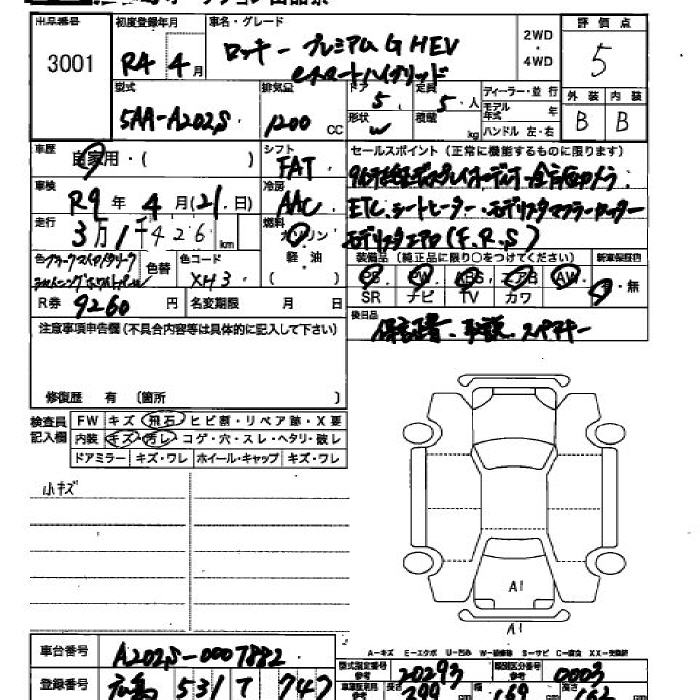 出品番号 初度登録年月 車名・グレード 評価点
3001 R4 年 4 月 ロッキー プレミアムG HEV 2WD・4WD 5
eスマートハイブリッド
型式 排気量 ドア 定員 ディーラー・並行 外装 内装
5AA-A202S 1200 CC 5 5 人 モデル年式 年 B B
形状 W 積載 kg ハンドル 左・右
車歴 自家用・( ) シフト FAT セールスポイント(正常に機能するものに限ります)
車検 R9 年 4 月(21 日) 冷房 AAC
ETC.シートヒーター・モデリスタマフラーカッター
走行 3万1千426 km 燃料 ガソリン 軽油
モデリスタエアロ(F.R.S)
色 色替 色コード XH3 装備品(純正品に限り○をつけてください) 新車保証書
PS PW ABS エアB AW 有・無
SR ナビ TV カワ
R券 9260 円 名変期限 月 日
後日品 保証書.取説.スペアキー
注意事項申告欄(不具合内容等は具体的に記入して下さい)
修復歴 有 〔箇所 〕
検査員記入欄 FW キズ・飛石・ヒビ割・リペア跡・X要
内装 キズ・汚レ・コゲ・穴・スレ・ヘタリ・破レ
ドアミラー キズ・ワレ ホイール・キャップ キズ・ワレ
小キズ
A1
A1
A…キズ E…エクボ U…凹み W…補修跡 S…サビ C…腐食 XX…交換済
車台番号 A202S-0007882
型式指定番号 20293 類別区分番号 0003
登録番号 広島 531 T 747
長さ 399 169 高さ 162